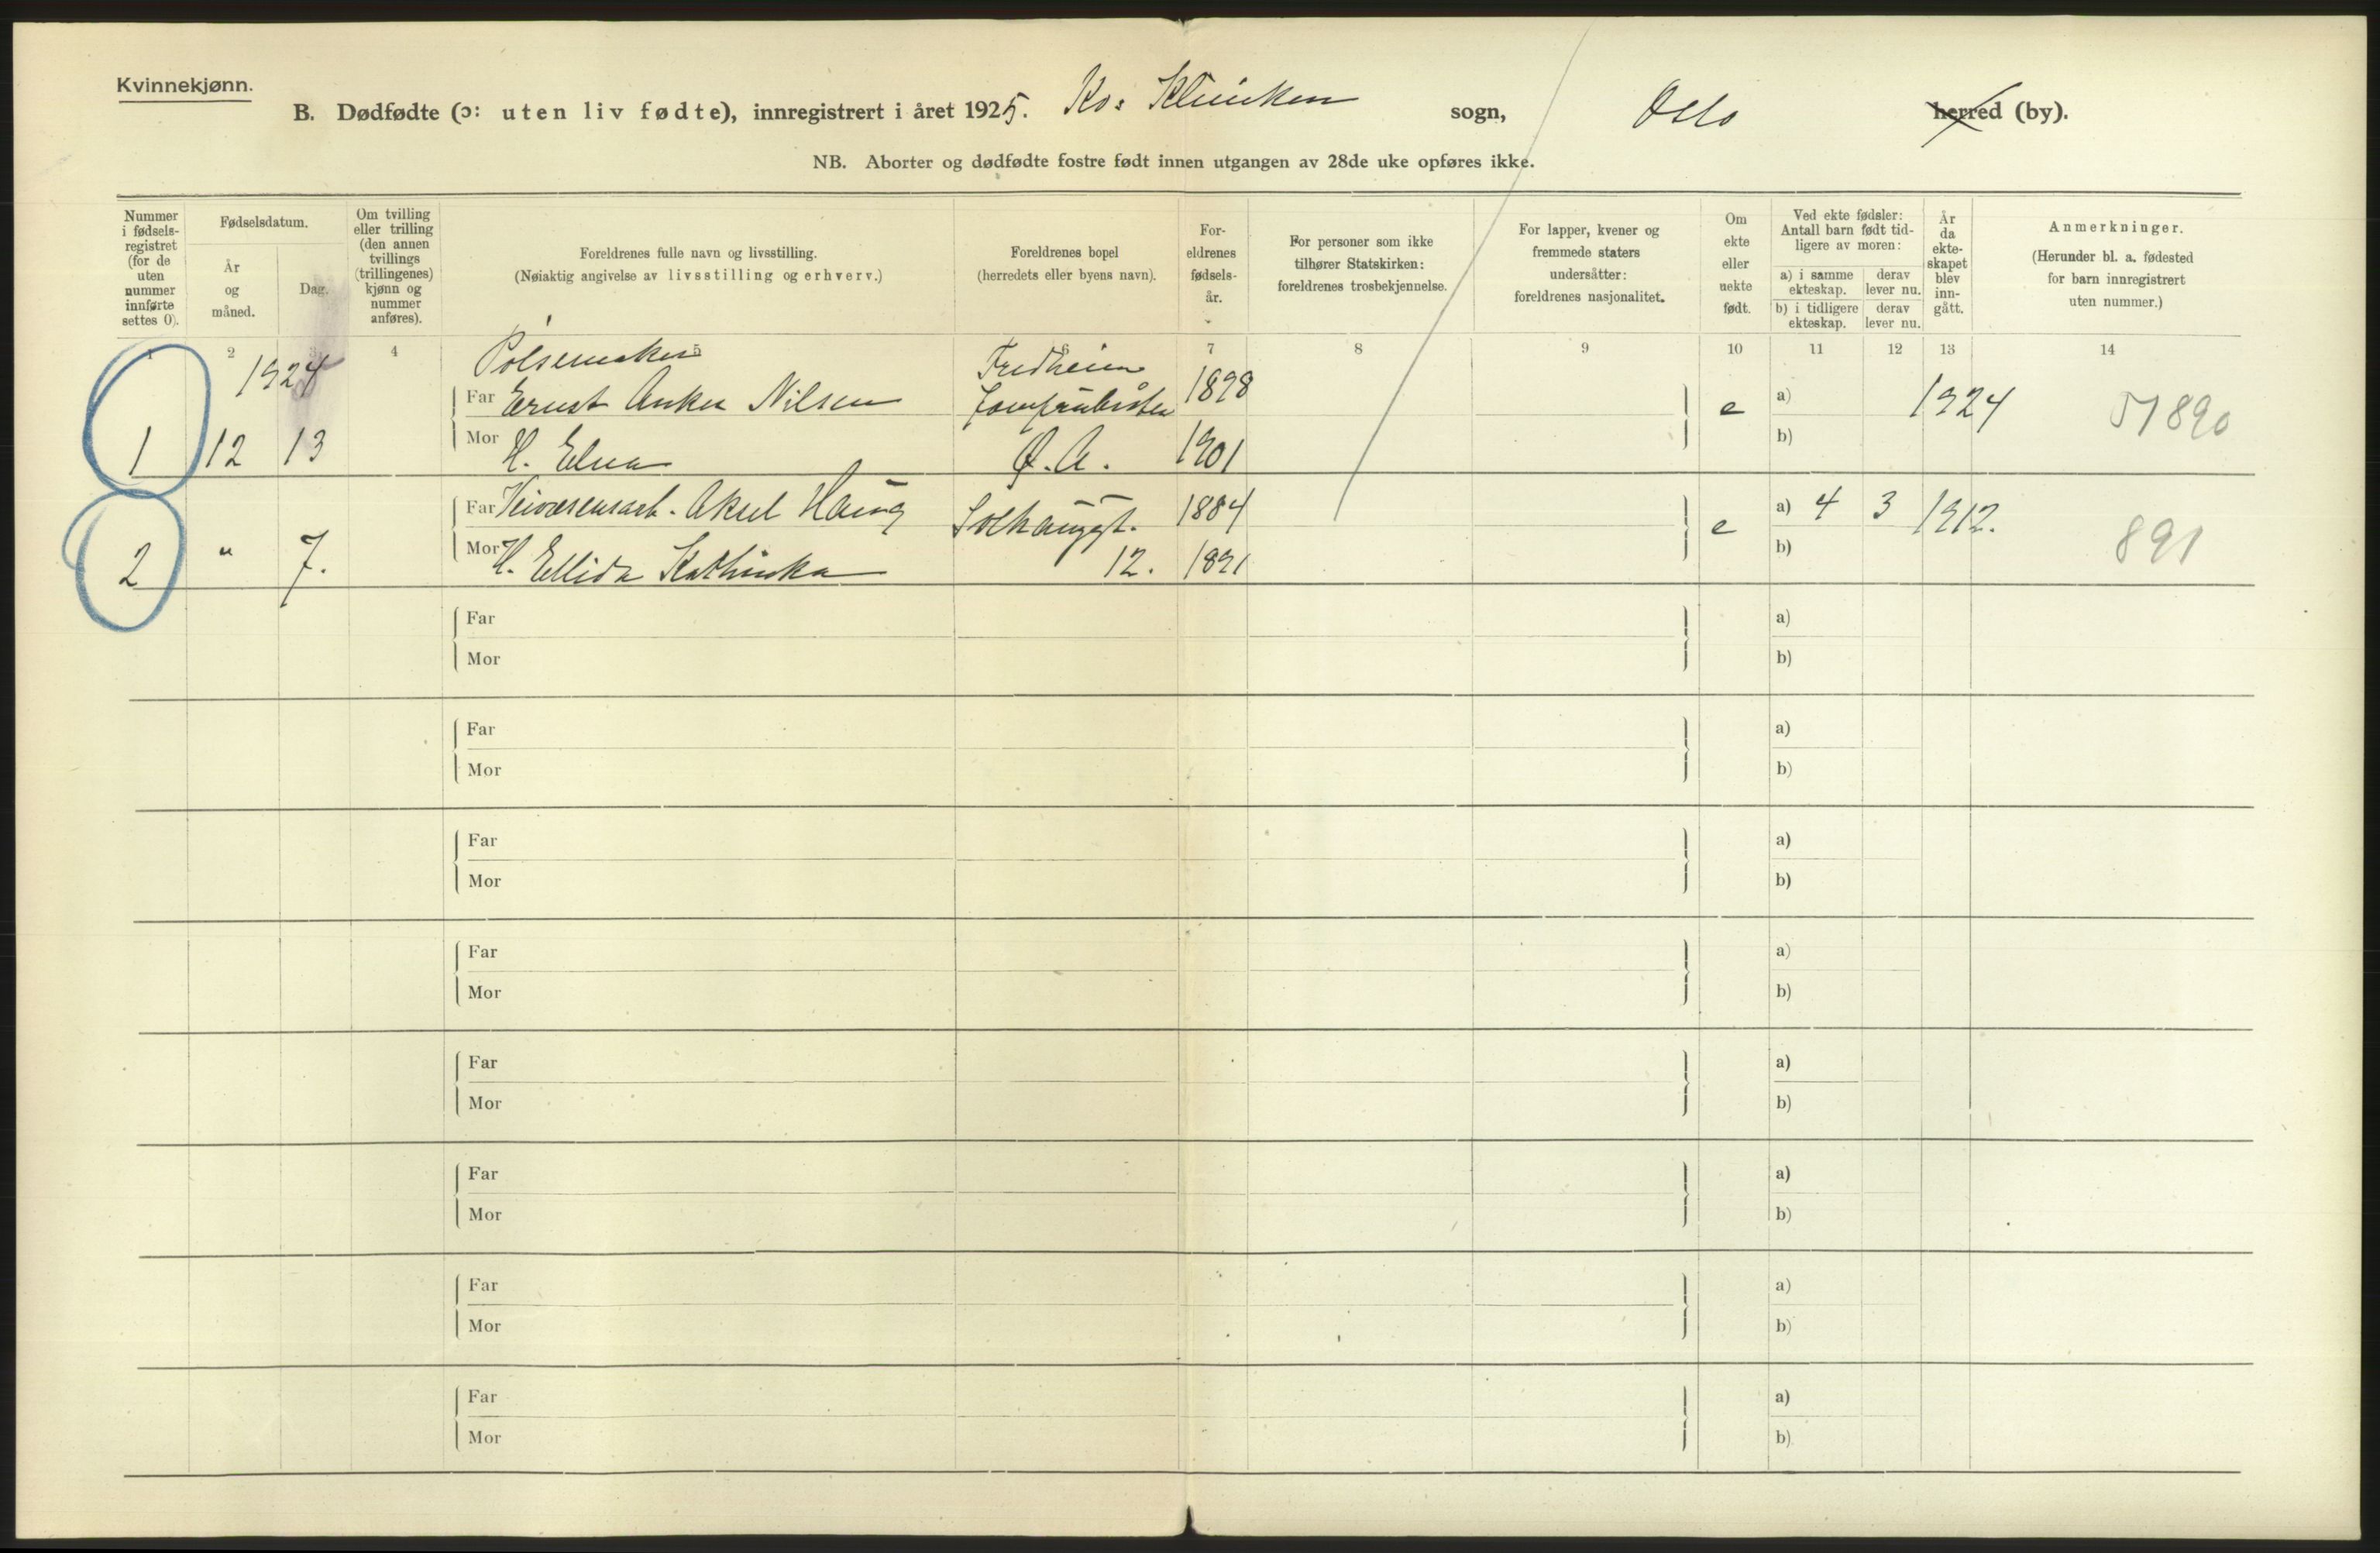 Kvinnekjønn.
B. Dødfødte (ɔ: uten liv fødte), innregistrert i året 1925. Kv: Kliniken sogn, Oslo herred (by).
NB. Aborter og dødfødte fostre født innen utgangen av 28de uke opføres ikke.
Nummer i fødsels- registret (for de uten nummer innførte settes 0).
Fødselsdatum.
År og måned.
Dag.
Om tvilling eller trilling (den annen tvillings (trillingenes) kjønn og nummer anføres).
Foreldrenes fulle navn og livsstilling.
(Nøiaktig angivelse av livsstilling og erhverv.)
Foreldrenes bopel
(herredets eller byens navn).
For- eldrenes fødsels- år.
For personer som ikke tilhører Statskirken: foreldrenes trosbekjennelse.
For lapper, kvener og fremmede staters undersåtter: foreldrenes nasjonalitet.
Om ekte eller uekte født.
Ved ekte fødsler: Antall barn født tid- ligere av moren:
a) i samme ekteskap. derav lever nu.
b) i tidligere ekteskap. derav lever nu.
År da ekte- skapet blev inn- gått.
Anmerkninger.
(Herunder bl. a. fødested for barn innregistrert uten nummer.)
1 2 3 4 5 6 7 8 9 10 11 12 13 14
1924 Pølsemaker Fredheim
Far Ernst Anker Nilsen Jomfrubråten 1898 e a) 1924 51890
1 12 13 Mor H. Elna Ø. A. 1901 b)
Far Veivæsensarb. Aksel Haug Solhauggt. 1884 e a) 4 3 1912.
2 " 7. Mor H. Ellida Kathinka 12. 1891 b) 891
Far a)
Mor b)
Far a)
Mor b)
Far a)
Mor b)
Far a)
Mor b)
Far a)
Mor b)
Far a)
Mor b)
Far a)
Mor b)
Far a)
Mor b)